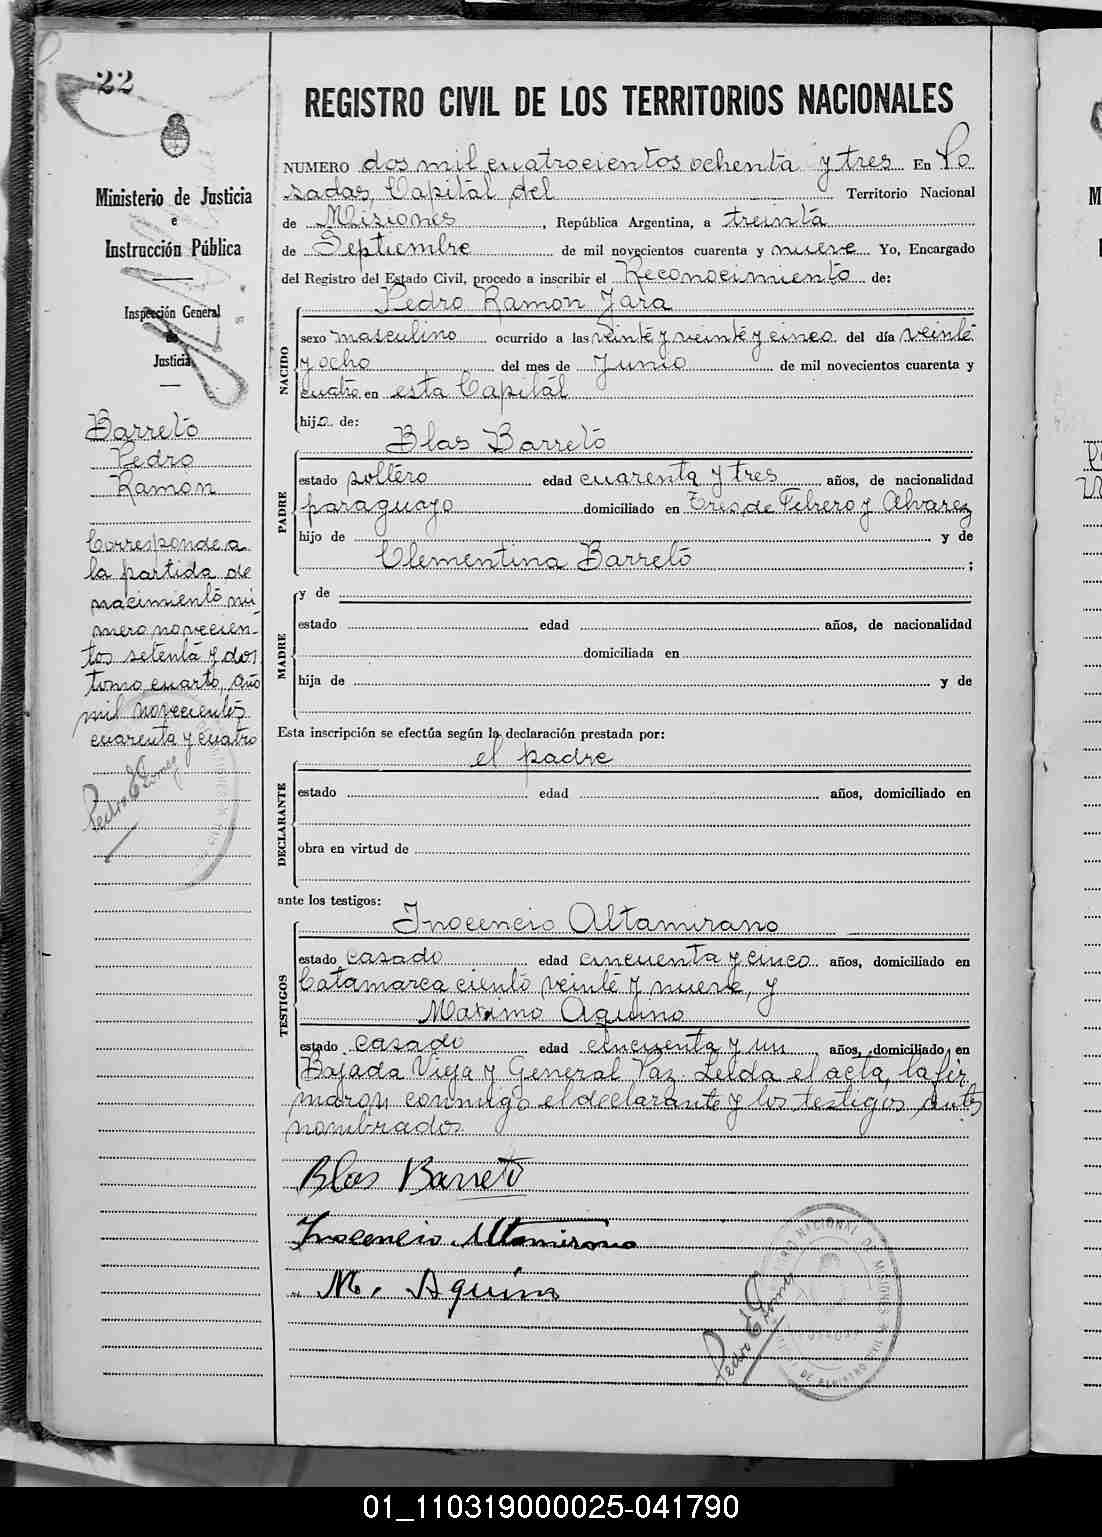 22
Ministerio de Justicia
e
Instrucción Pública
Inspección General
de
Justicia
Barreto
Pedro
Ramon
Corresponde a
la partida de
nacimiento nú
mero novecien-
tos setenta y dos
tomo cuarto, año
mil novecientos
cuarenta y cuatro
Pedro E Gomez
REGISTRO CIVIL DE LOS TERRITORIOS NACIONALES
NUMERO dos mil cuatrocientos ochenta y tres En Po
sadas, Capital del Territorio Nacional
de Misiones, República Argentina, a treinta
de Septiembre de mil novecientos cuarenta y nueve Yo, Encargado
del Registro del Estado Civil, procedo a inscribir el Reconocimiento de:
Pedro Ramon Jara
NACIDO
sexo masculino ocurrido a las veinte y veinte y cinco del día veinte
y ocho del mes de Junio de mil novecientos cuarenta y
cuatro en esta Capital
hijo de:
Blas Barreto
PADRE
estado soltero edad cuarenta y tres años, de nacionalidad
paraguayo domiciliado en Tres de Febrero y Alvarez
hijo de y de
Clementina Barreto ;
MADRE
y de
estado edad años, de nacionalidad
domiciliada en
hija de y de
Esta inscripción se efectúa según la declaración prestada por:
el padre
DECLARANTE
estado edad años, domiciliado en
obra en virtud de
ante los testigos:
Inocencio Altamirano
TESTIGOS
estado casado edad cincuenta y cinco años, domiciliado en
Catamarca ciento veinte y nueve, y
Maximo Aquino
estado casado edad cincuenta y un años, domiciliado en
Bajada Vieja y General Paz. Leida el acta, la fir
maron conmigo el declarante y los testigos antes
nombrados
Blas Barreto
Inocencio Altamirano
M. Aquino
Pedro E Gomez
01_110319000025-041790